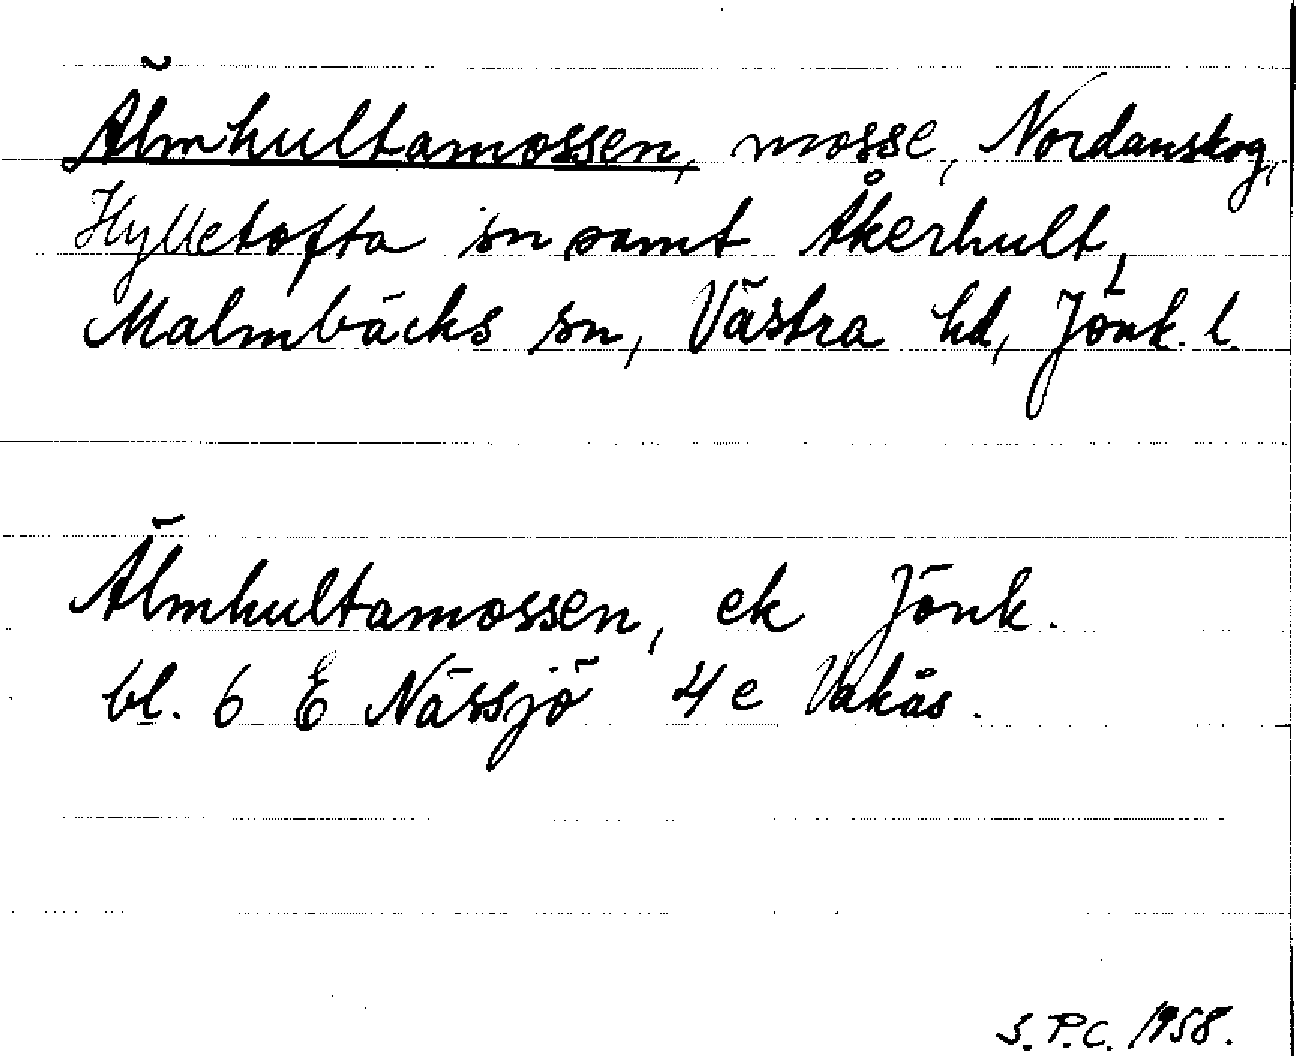 Älmhultamossen, mosse, Nordanskog,
Hylletofta sn samt Åkerhult,
Malmbäcks sn, Västra hd, Jönk. l.
Älmhultamossen, ek Jönk.
bl. 6 E Nässjö 4 e Vakås.
S.P.C. 1958.